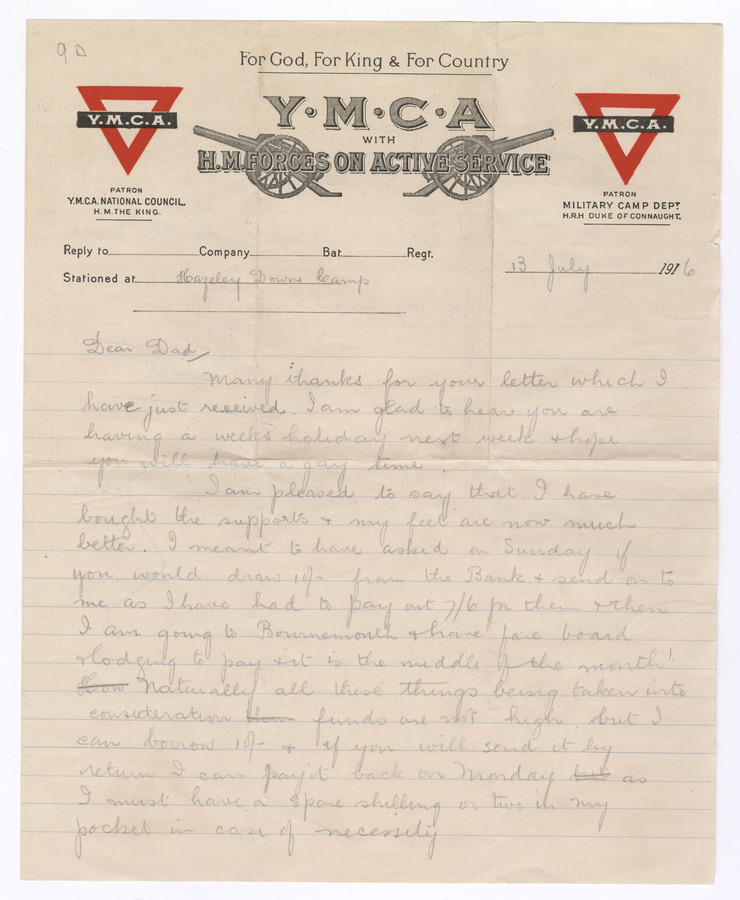 9D
For God, For King & For Country
Y.M.C.A.
Y·M·C·A
WITH
H.M.FORCES ON ACTIVE SERVICE
Y.M.C.A.
PATRON
Y.M.C.A. NATIONAL COUNCIL.
H.M.THE KING.
PATRON
MILITARY CAMP DEPT
H.R.H DUKE OF CONNAUGHT.
Reply to Company Bat. Regt.
Stationed at Hazeley Down Camp
13 July 1916
Dear Dad,
Many thanks for your letter which I
have just received. I am glad to hear you are
having a weeks holiday next week & hope
you will have a gay time.
I am pleased to say that I have
bought the supports & my feet are now much
better. I meant to have asked on Sunday if
you would draw 10/- from the Bank & send on to
me as I have had to pay out 7/6 for them & then
I am going to Bournemouth & have fare board
& lodging to pay & it is the middle of the month!
How Naturally all these things being taken into
consideration funds are not high, but I
can borrow 10/- & if you will send it by
return I can pay it back on Monday but as
I must have a spare shilling or two in my
pocket in case of necessity